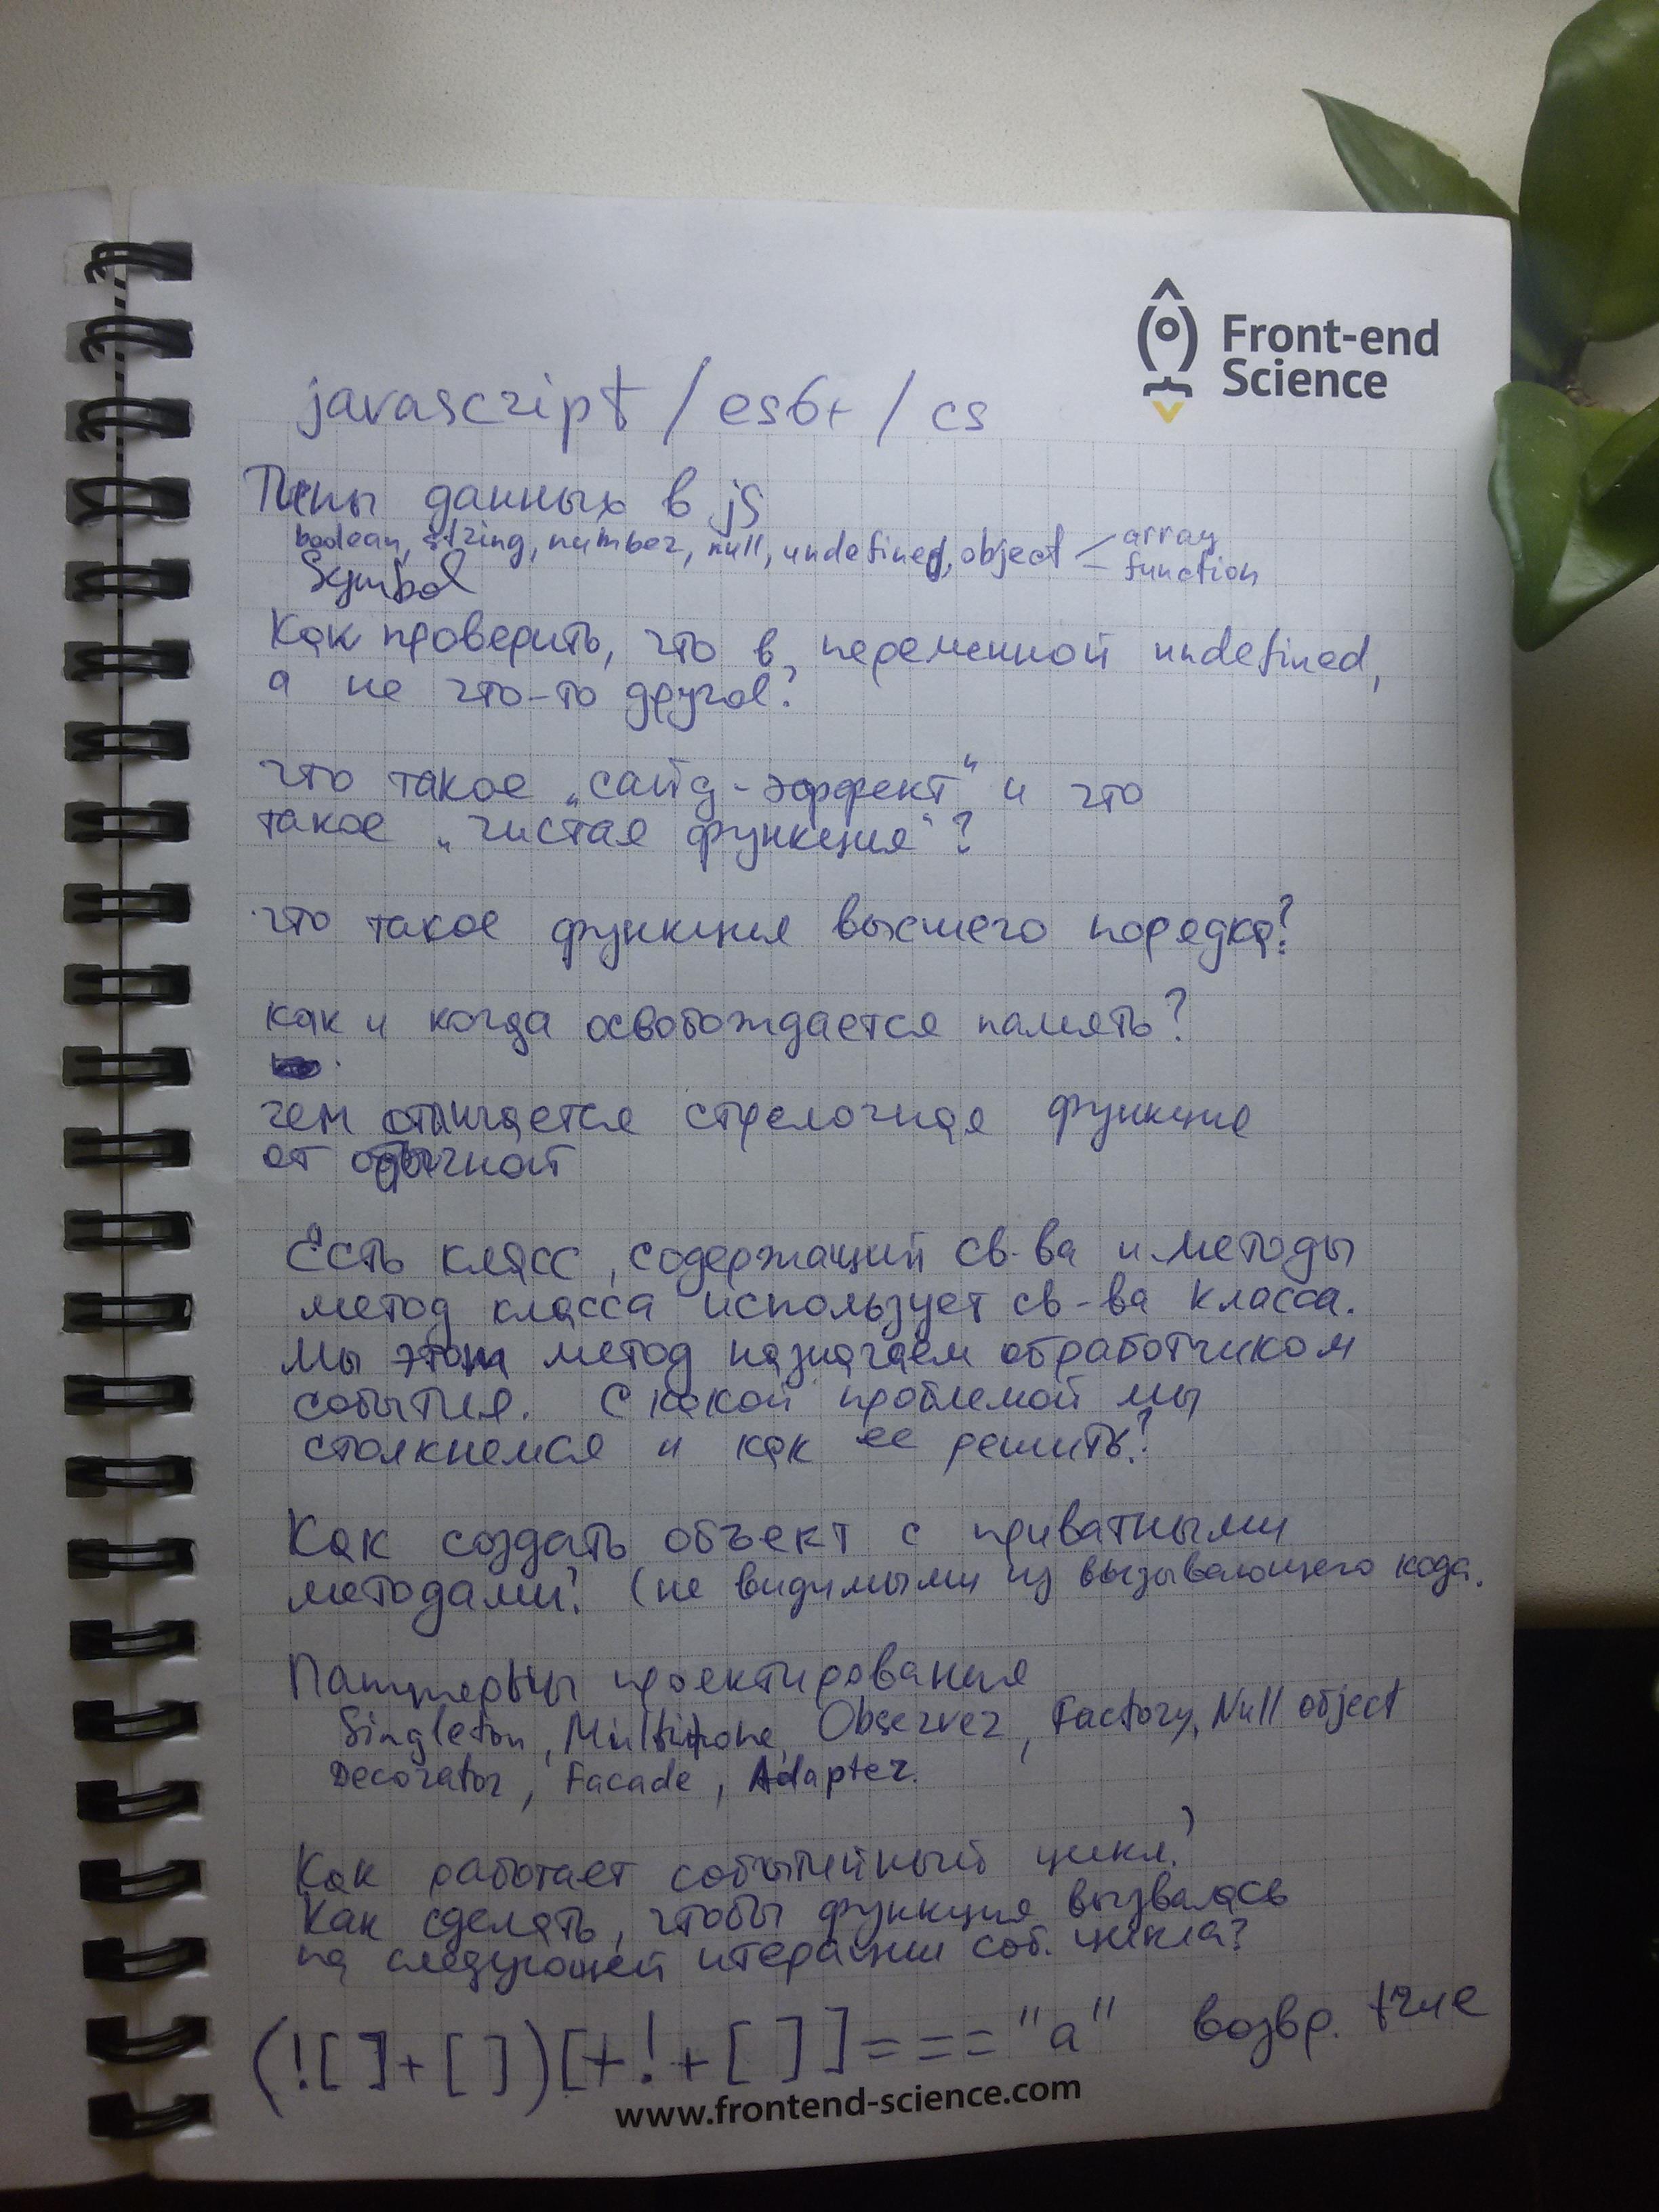 Front-end
Science
javascript / es6+ / cs
Типы данных в js
boolean, string, number, null, undefined, object < array
function
Symbol
Как проверить, что в переменной undefined,
а не что-то другое?
что такое „сайд-эффект" и что
такое „чистая функция"?
что такое функция высшего порядка?
как и когда освобождается память?
чем отличается стрелочная функция
от обычной
Есть класс, содержащий св-ва и методы
метод класса использует св-ва класса.
Мы этот метод назначаем обработчиком
события. С какой проблемой мы
столкнемся и как ее решить?
Как создать объект с приватными
методами? (не видимыми из вызывающего кода.
Паттерны проектирования
Singleton, Multitone, Observer, Factory, Null object
Decorator, Facade, Adapter.
Как работает событийный цикл?
Как сделать, чтобы функция вызвалась
на следующей итерации соб. цикла?
(![]+[])[+!+[]]==="a" возвр. true
www.frontend-science.com